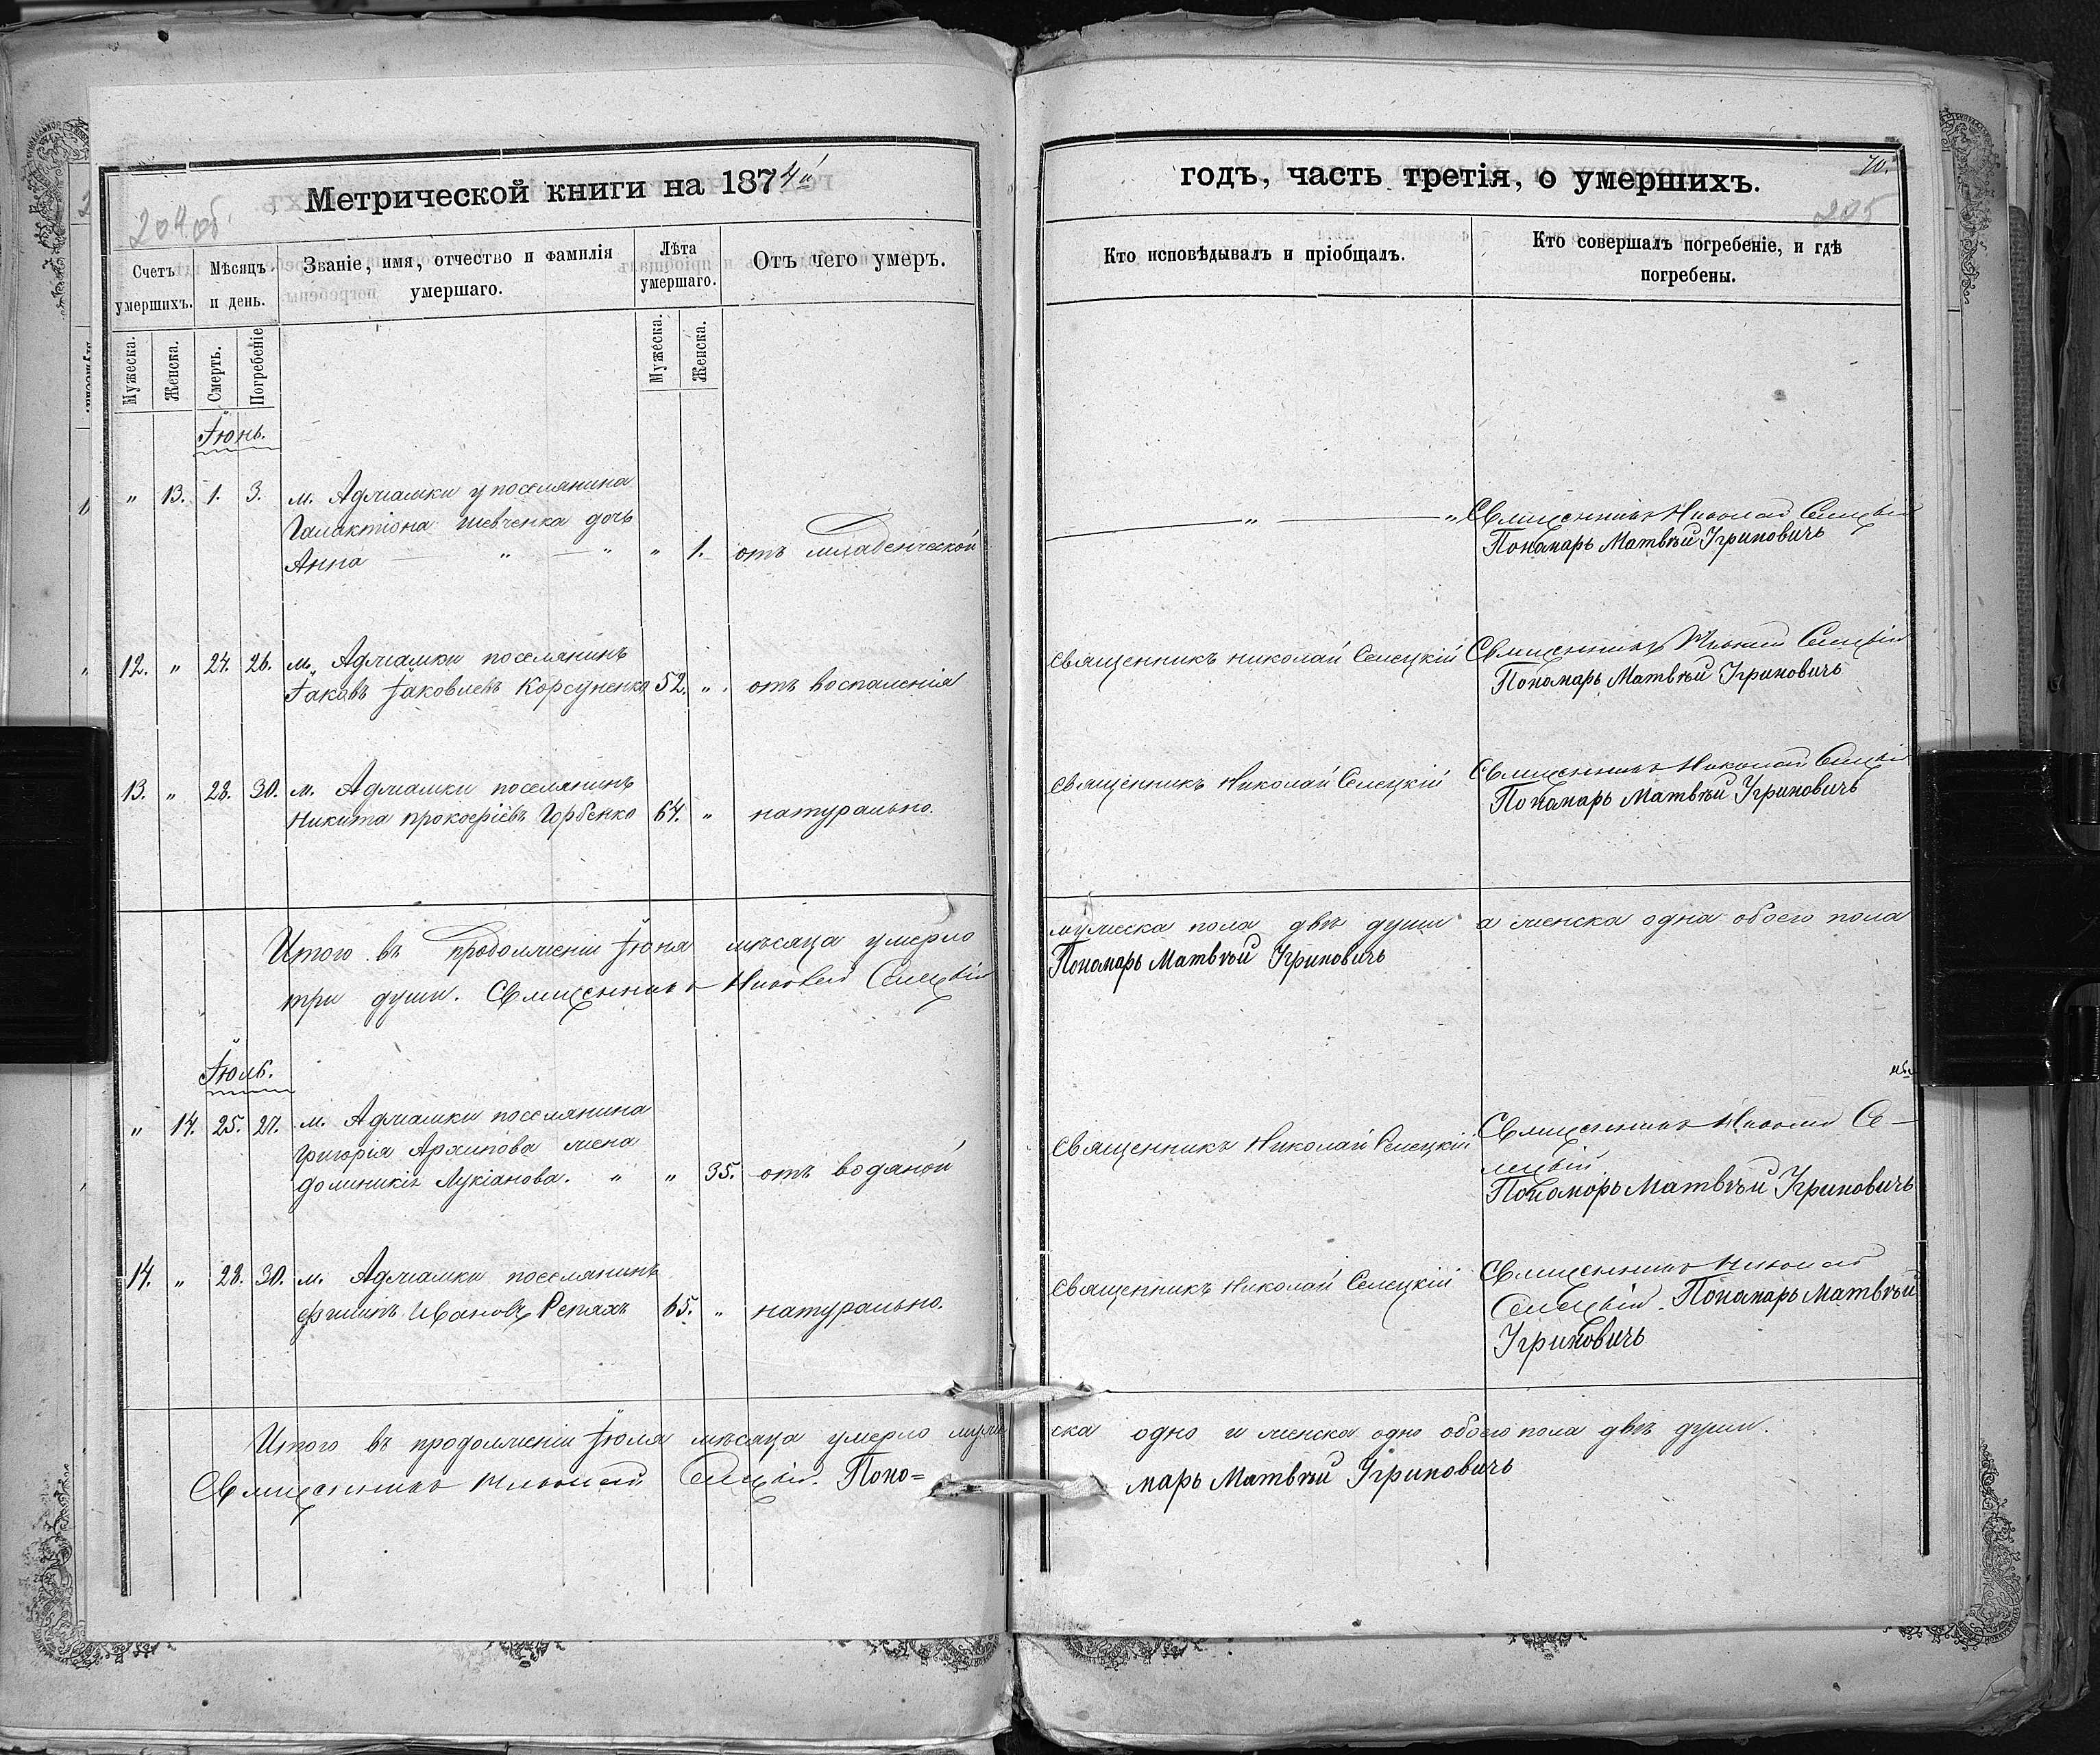 Метрической книги на 1874й
204об.
Счетъ умершихъ.
Мѣсяцъ и день.
Званіе, имя, отчество и фамилія умершаго.
Лѣта умершаго.
Отъ чего умеръ.
Мужеска.
Женска.
Смерть.
Погребеніе
Мужеска.
Женска.
Іюнь.
" 13. 1. 3. м. Аджамки у поселянина
Галактіона Шевченка дочь
Анна " " " 1. отъ младенческой
12. " 24. 26. м. Аджамки поселянинъ
Іаковъ Іаковлевъ Корсуненко 52. " отъ воспаленія
13. " 28. 30. м. Аджамки поселянинъ
Никита Прокофіевъ Горбенко 64. " натурально.
Итого въ продолженіи Іюня мѣсяца умерло
три души. Священникъ Николай Селецкій
Іюль.
" 14. 25. 27. м. Аджамки поселянина
Григорія Архипова жена
Доминикія Лукіанова. " " 35. отъ водяной
14. " 28. 30. м. Аджамки поселянинъ
Филипъ Ивановъ Репяхъ 65. " натурально.
Итого въ продолженіи Іюля мѣсяца умерло муже
Священникъ Николай Селецкій. Поно=
годъ, часть третія, о умершихъ.
70.
205
Кто исповѣдывалъ и пріобщалъ.
Кто совершалъ погребеніе, и гдѣ погребены.
" " Священникъ Николай Селецкій
Пономарь Матвѣй Угриновичь
Священникъ Николай Селецкій Священникъ Николай Селецкій
Пономарь Матвѣй Угриновичь
Священникъ Николай Селецкій Священникъ Николай Селецкій
Пономарь Матвѣй Угриновичь
мужеска пола двѣ души а женска одна обоего пола
Пономарь Матвѣй Угриновичь
Священникъ Николай Селецкій Священникъ Николай Се-
лецкій.
Пономарь Матвѣй Угриновичь
Священникъ Николай Селецкій Священникъ Николай
Селецкій. Пономарь Матвѣй
Угриновичь
ска одно и женска одно обоего пола двѣ души.
марь Матвѣй Угриновичь